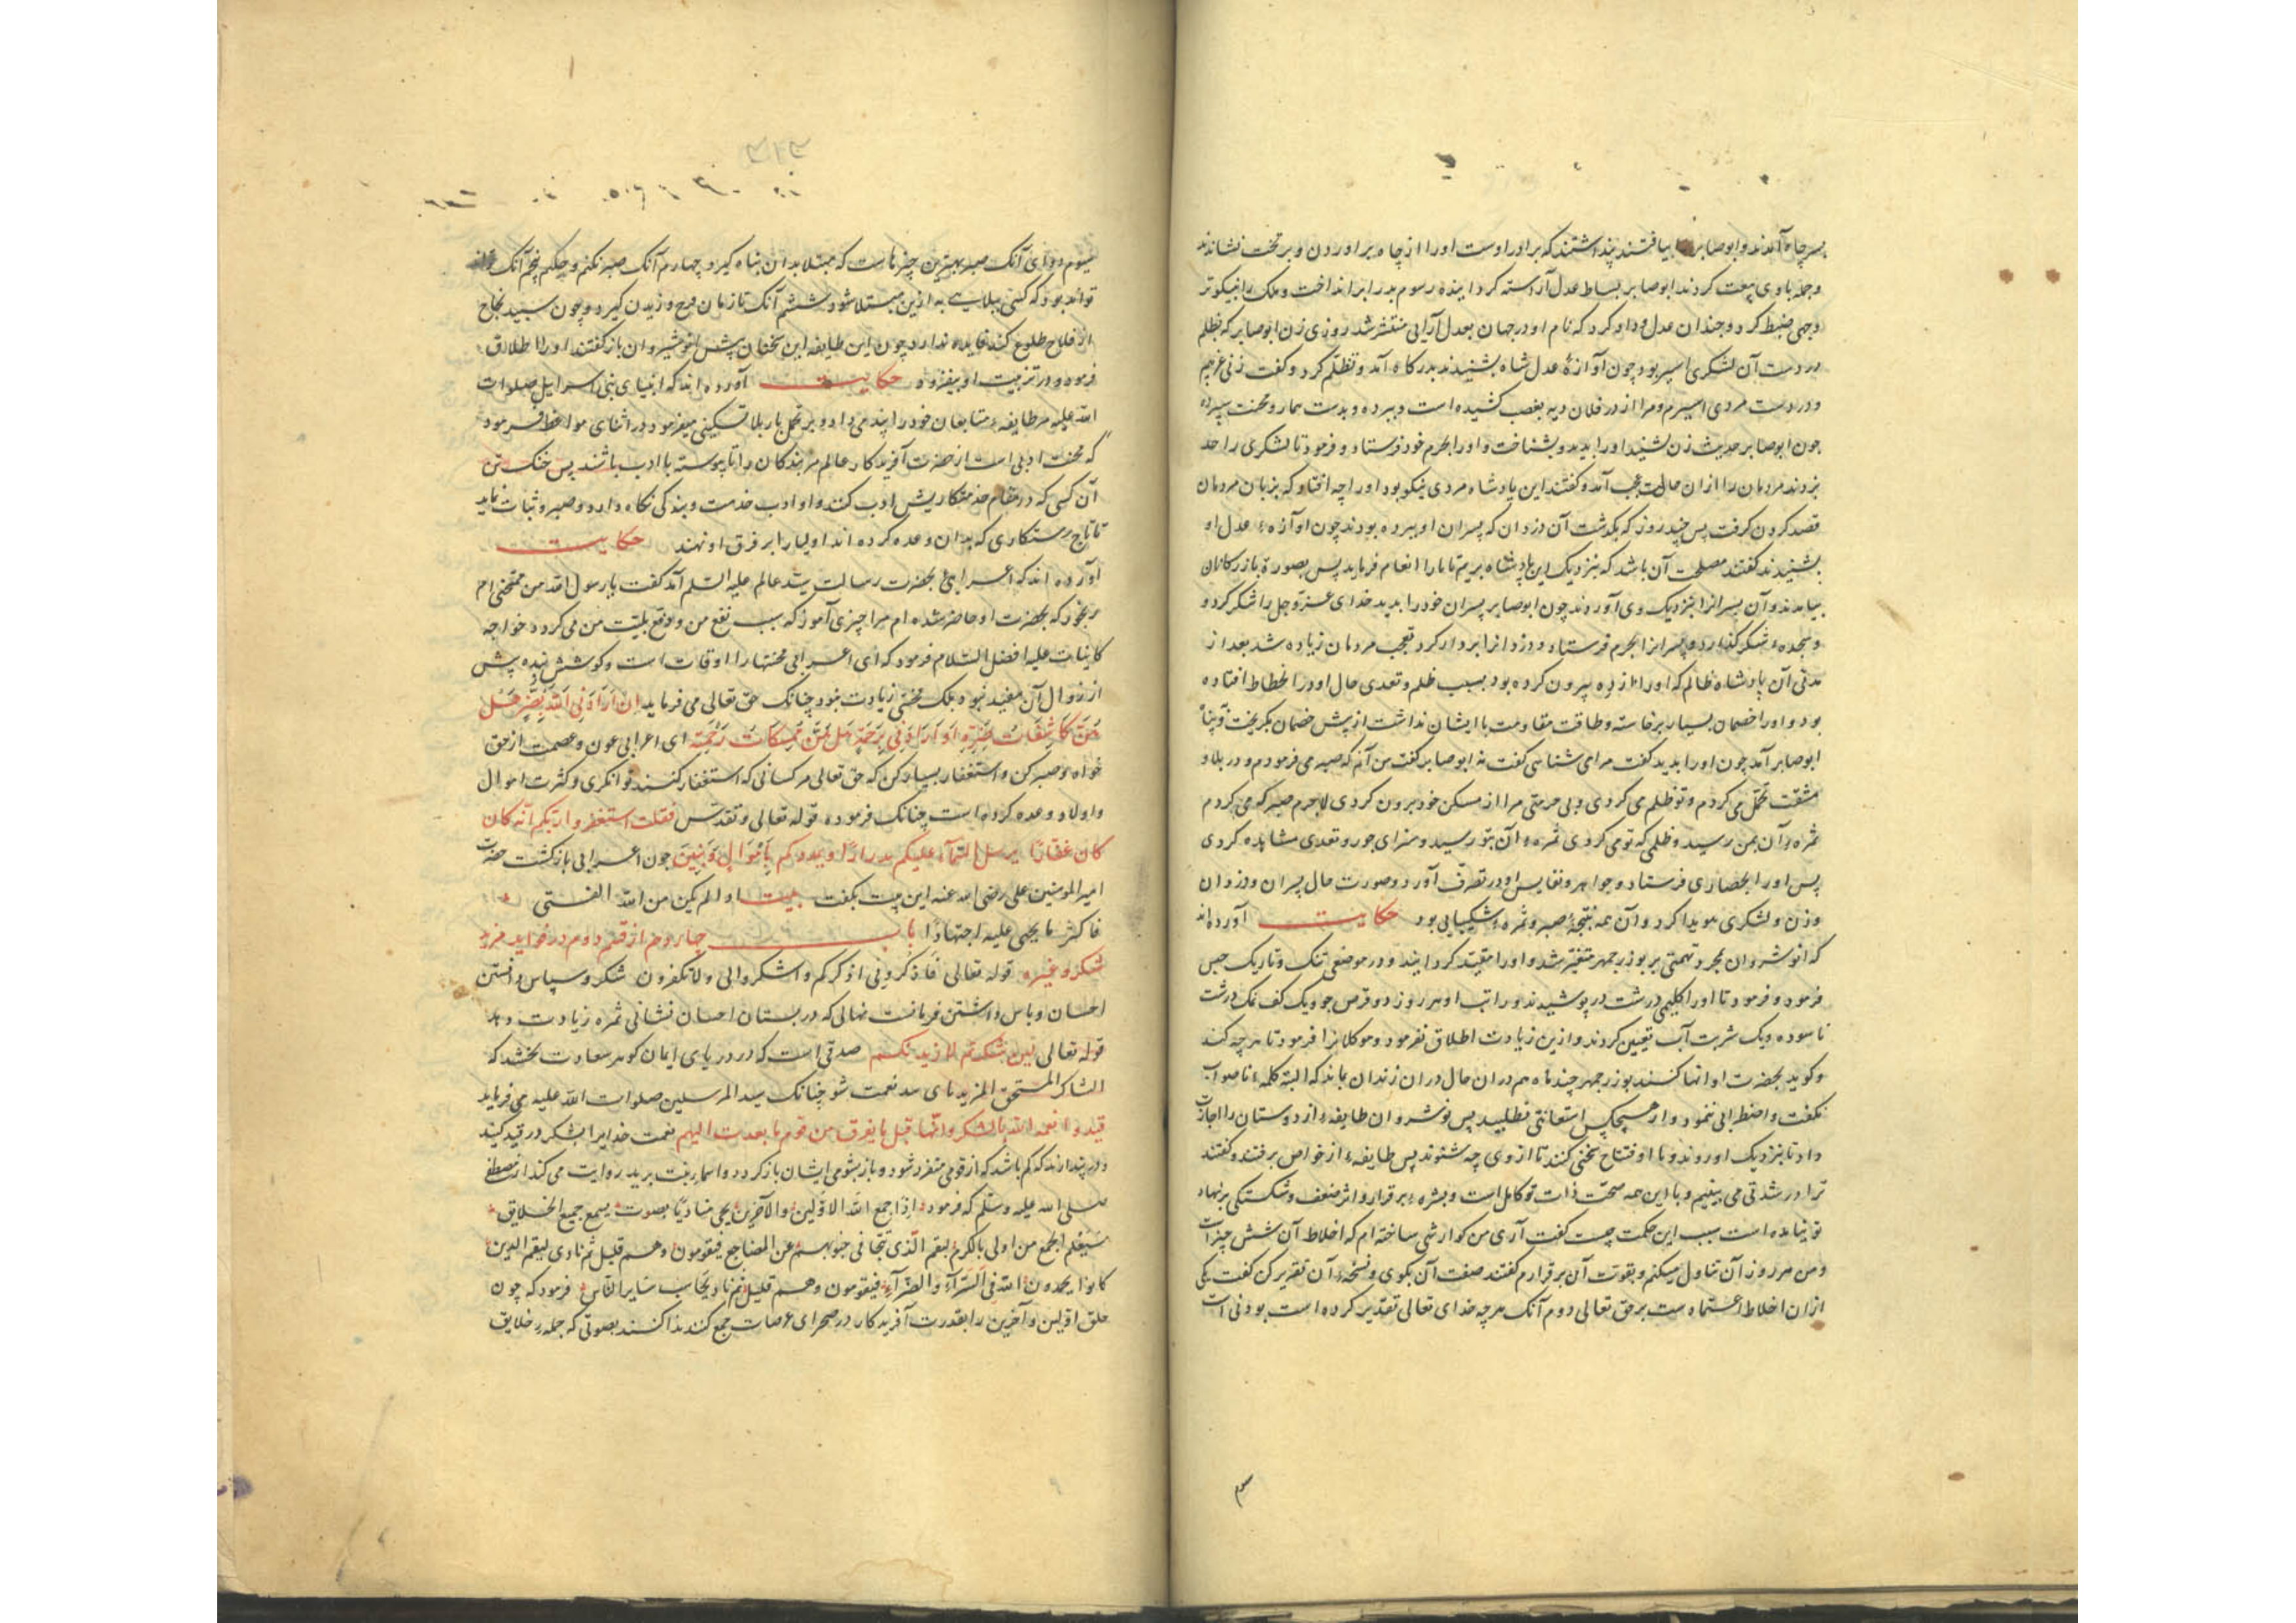 بسر چاه آمدند و ابو صابر را بیافتند پنداشتند که برادر اوست او را از چاه بر آوردن و بر تخت نشاندند
و جمله با وی بیعت کردند ابو صابر بساط عدل آراسته گردانیده رسوم بد را برانداخت و ملک را نیکوتر
وجهی ضبط کرد و چندان عدل و داد کرد که نام او در جهان بعدل آرایی منتشر شد روزی زن ابو صابر که بظلم
در دست آن لشکری اسیر بود چون آوازۀ عدل شاه بشنید بدرگاه آمد و تظلّم کرد و گفت زنی غریبم
و در دست مردی اسیرم و مرا از در فلان دیه بغصب کشیده است و ببرده و بدست بیمار و محنت سپرده
چون ابو صابر حدیث زن شنید او را بدید و بشناخت و او را بحرم خود فرستاد و فرمود تا لشکری را حد
بزدند مردمان را از ان حالت عجب آمد و گفتند این پادشاه مردی نیکو بود او را چه افتاد که بزنان مردمان
قصد کردن گرفت پس چند روز که بگذشت آن دزدان که پسران او ببرده بودند چون آوازهٔ عدل او
بشنیدند گفتند مصلحت آن باشد که بنزدیک این پادشاه بریم تا ما را انعام فرماید پس بصورة بازرگانان
بیامدند و آن پسرانرا بنزدیک وی آوردند چون ابو صابر پسران خود را بدید خدای عزّ و جل را شکر کرد و
و سجدهٔ شکر گذارد و پسرانرا بحرم فرستاد و دزدانرا بر دار کرد تعجب مردمان زیاده شد بعد از
مدتی آن پادشاه ظالم که او را از ده بیرون کرده بود بسبب ظلم و تعدی حال او در انحطاط افتاده
بود و او را خصمان بسیار برخاسته و طاقت مقاومت با ایشان نداشت از پیش خصمان بگریخت و پناه
ابو صابر آمد چون او را بدید گفت مرا می شناسی گفت نه ابو صابر گفت من آنم که صبر می فرمودم و در بلا و
مشقت تحمّل می کردم و تو ظلم می کردی و بی حرمتی مرا از مسکن خود برون کردی لاجرم صبر که می کردم
ثمرهٔ آن بمن رسید و ظلمی که تو می کردی ثمرهٔ آن بتو رسید و سزای جور و تعدی مشاهده کردی
پس او را بحصاری فرستاد و جواهر و نفایس او در تصرف آورد و صورت حال پسران و دزدان
و زن و لشکری هویدا کرد و آن همه نتیجهٔ صبر و ثمرهٔ شکیبایی بود حکایت آورده اند
که انوشروان بمجرد تهمتی بر بوزرجمهر متغیّر شد و او را مقیّد گردانید و در موضعی تنگ و تاریک حبس
فرمود و فرمود تا او را گلیمی درشت در پوشیدند و راتب او هر روز دو قرص جو و یک کف نمک درشت
ناسوده و یک شربت آب تعیین کردند و ازین زیادت اطلاق نفرمود و موکلانرا فرمود تا هر چه کند
و گوید بحضرت او انها کنند بوزرجمهر چند ماه هم در ان حال در ان زندان بماند که البته کلمهٔ ناصواب
نگفت و اضطرابی ننمود و از هیچکس استعانتی نطلبید پس نوشروان طایفهٔ از دوستان را اجازت
داد تا بنزدیک او روند و با او افتتاح سخنی کنند تا از وی چه شنوند پس طایفهٔ از خواص برفتند و گفتند
ترا در شدتی می بینیم و با این همه صحّت ذات تو کامل است و بشره برقرار و اثر ضعف و شکستگی بر نهاد
تو نیامده است سبب این حکمت چیست گفت آری من گوارشی ساخته ام که اخلاط آن شش چیز است
و من هر روز آن تناول میکنم و بقوت آن برقرارم گفتند صفت آن بگوی و نسخهٔ آن تقریر کن گفت یکی
از ان اخلاط اعتماد ست بر حق تعالی دوم آنک هر چه خدای تعالی تقدیر کرده است بودنی است
سوم
سیوم دوای آنک صبر بهترین چیزهاست که مبتلا بدان پناه گیرد چهارم آنک صبر نکنم و چکنم پنجم آنک تواند
تواند بود که کسی ببلایی بد ازین مبتلا شود ششم آنک تا زمان فرج وزیدن گیرد و چون سپید نجاح
از فلاح طلوع کند فایده ندارد چون این طایفه این سخنان پیش انوشیروان باز گفتند او را اطلاق
فرمود و در تربیت او بیفزود حکایت آورده اند که انبیای بنی اسرایل صلوات
الله علیهم مر طایفهٔ متابعان خود را پند می داد و بر تحمل بار بلا تسکینی میفرمود و در اثنای مواعظ فرمود
که محنت ادبی است از حضرت آفریدگار عالم مر بندگان را تا پیوسته با ادب باشند پس خنک تن
آن کسی که در مقام خدمتکاریش ادب کند و او ادب خدمت و بندگی نگاه دارد و صبر و ثبات نماید
تا تاج رستگاری که بدان وعده کرده اند اولیا را بر فرق او نهند حکایت
آورده اند که اعرابی بحضرت رسالت سیّد عالم علیه السّلم آمد گفت یا رسول الله من ممتحنی ام
رنجور که بحضرت او حاضر شده ام مرا چیزی آموز که سبب نفع من و دفع بلیّت من می گردد خواجه
کاینات علیه افضل السّلام فرمود که ای اعرابی محنتها را اوقات است و کوشش بنده پیش
از زوال آن مفید نبود بلک محنتی زیادت بود چنانک حق تعالی می فرماید اِنْ اَرَادَنِی اللّه بِضُرٍّ هَل
هُنَّ کَاشِفَاتُ ضُرِّهِ اَوْ اَرَادَنِی بِرَحْمَةٍ هَل هُنَّ مُمْسِکَاتُ رَحْمَتِه ای اعرابی عون و عصمت از حق
خواه و صبر کن و استغفار بسیار کن که حق تعالی مر کسانی که استغفار کنند توانگری و کثرت اموال
و اولاد وعده کرده است چنانک فرموده قوله تعالی و تقدّس فقلت استغفروا ربکم انّه کان
کان غفارًا یرسل السّمآء علیکم مدرارًا و یمددکم بِاَمْوَالٍ وَبَنِینَ چون اعرابی بازگشت حضرت
امیر المومنین علی رضی الله عنه این بیت بگفت بیت اذا لم یکن من الله الفتی
فاکثر ما یجنی علیه اجتهادًا باب چهاروم از قسم دوم در فواید مزید
شکر و غیره قوله تعالی فَاذْکُرُونِی اذکرکم و اشکروا لی ولا تکفرون شکر و سپاس داشتن
احسان و پاس داشتن فرمانست نهالی که در بستان احسان نشانی ثمره زیادت دهد
قوله تعالی لین شکرتم لازیدنکم صدقی است که در دریای ایمان گوهر سعادت بخشد که
الشاکر المستحق المزید نای سد نعمت شو چنانک سید المرسلین صلوات الله علیه می فرماید
قیدوا نعمه الله بالشکر وانّها قبل ما یفرق من قوم ما بعدت الیهم نعمت خدایرا بشکر در قید کنید
و در پندارند که کم باشد که از قومی متفرد شود و باز بشومی ایشان باز گردد و اسما بنت یزید روایت می کند از مصطفی
صلی الله علیه وسلم که فرمود اِذا جمع الله الاوّلین والآخرین یجی منادیًا بصوت یسمع جمیع الخلایق
سَیَعْلَم الجمع من اولی بالکرم لیقم الّذی تتجافی جنوبهم عن المضاجع فیقومون وهم قلیل ثم نادی لیقم الذین
کانوا یحمدون الله فی السَّرّآءِ والضّرّآءِ فیقومون وهم قلیل ثم نادی یحاسب سَایر النّاس فرمود که چون
خلق اوّلین و آخرین را بقدرت آفریدگار در صحرای عرصات جمع کنند ندا کنند بصوتی که جمله خلایق